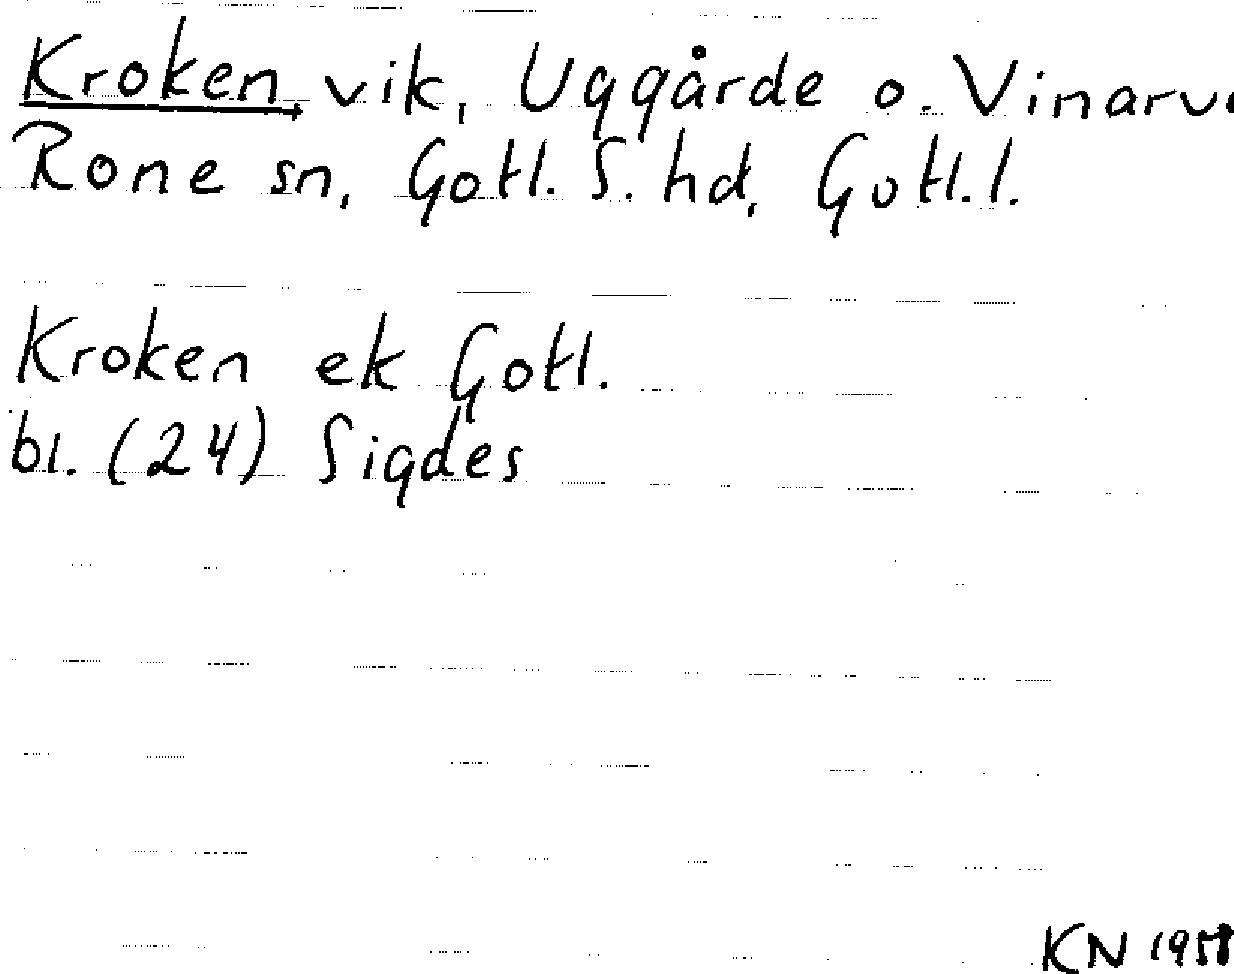 Kroken vik, Uggårde o. Vinarve
Rone sn, Gotl. S. hd, Gotl. l.
Kroken ek Gotl.
bl. (24) Sigdes
KN